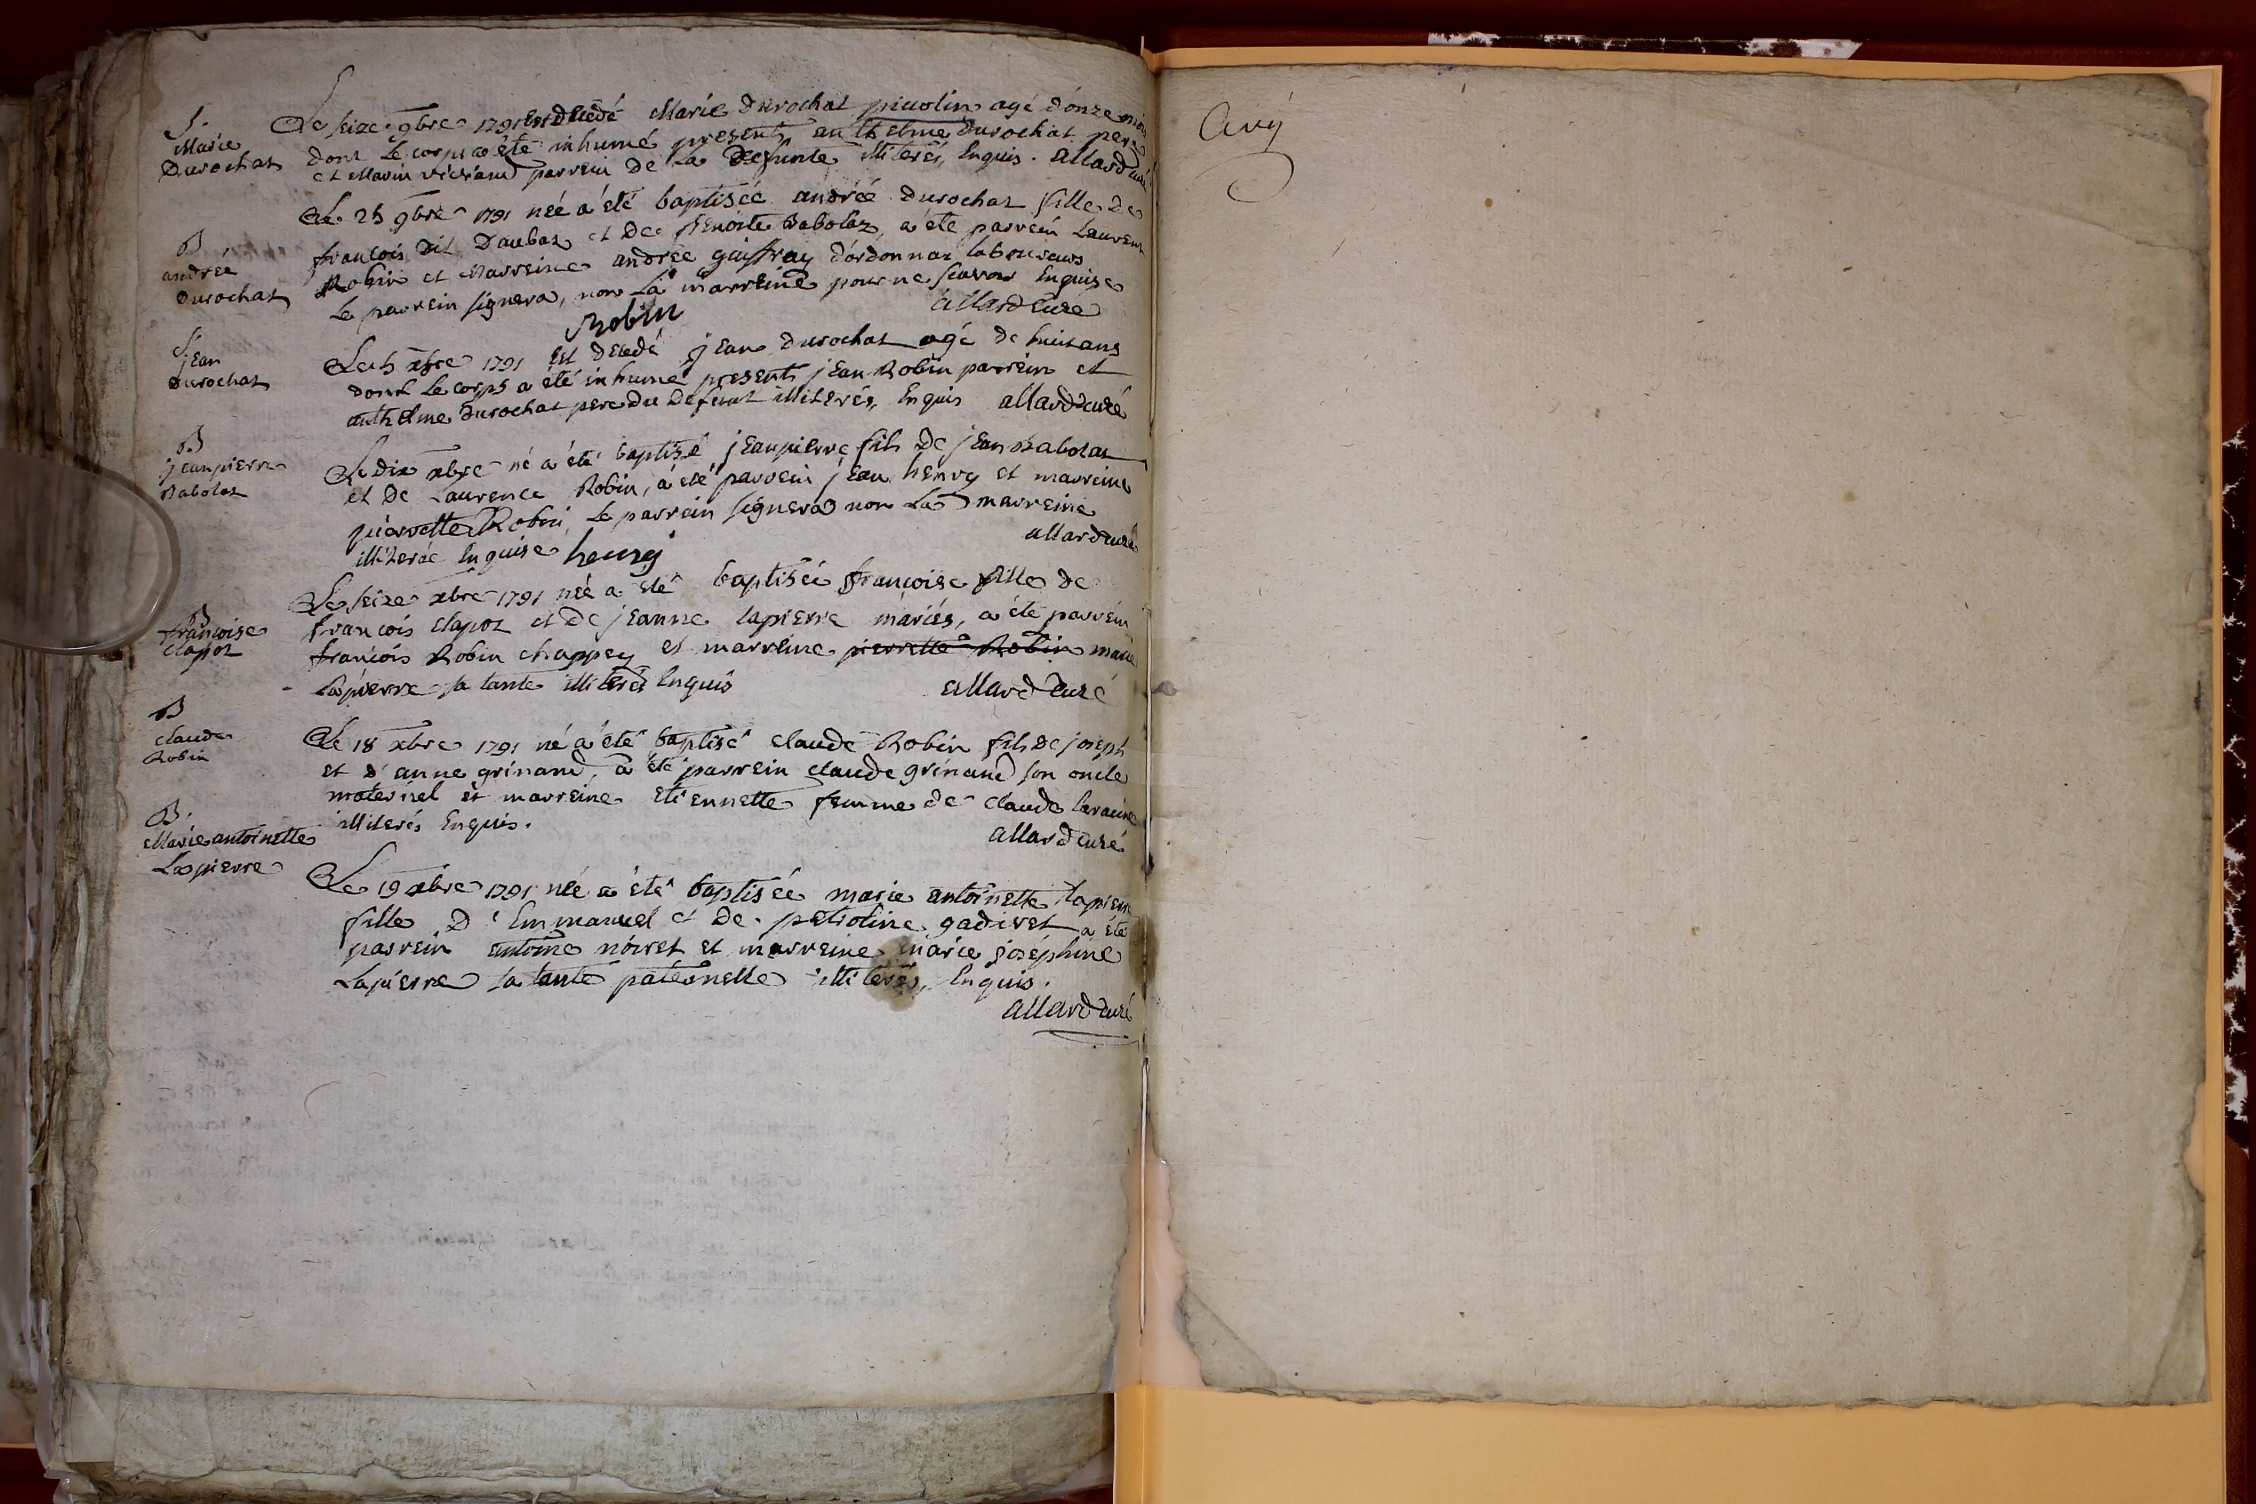 S.
Marie
Durochat
Le seize 9bre 1791 Est décédé Marie Durochat agé d'onze mois
dont le corps a été inhumé presents anthelme Durochat pere
et parrein de La Defunte illiterés, Enquis. allard curé
B
andrée
Durochat
Le 25 9bre 1791 née a été baptisée andrée Durochat fille de
françois Dit Daubat et De Benoite Babolaz, a été parrein Laurent
Robin et Marreine andrée guiffray d'ordonnaz laboureurs
Le parrein signera, non La marreine pour ne scavoir Enquise
Robin
allard Curé
S.
jean
Durochat
Le 5 xbre 1791 Est decedé jean Durochat agé de huit ans
dont Le corps a été inhumé presents jean Robin parrein et
anthelme Durochat pere du Defunt illiterés, Enquis allard curé
B
jeanpierre
Babolat
Le dix xbre né a été baptisé jeanpierre fils De jean Babolat
et De Laurence Robin, a été parrein jean henry et marreine
pierrette Robin, Le parrein signera non La marreine
illiterée Enquise henry
allard curé
B
françoise
clapot
Le seize xbre 1791 née a été baptisée françoise fille de
françois clapot et De jeanne lapierre mariés, a été parrein
françois Robin chappey et marreine pierrette Robin marie
Lapierre sa tante illiterés Enquis
allard curé
B
claude
Robin
Le 18 xbre 1791 né a été baptisé claude Robin fils De joseph
et d'anne grinand, a été parrein claude grinand son oncle
maternel et marreine etiennette femme de claude
illiterés Enquis.
allard curé
B.
Marie antoinette
Lapierre
Le 19 xbre 1791 née a été baptisée marie antoinette lapierre
fille D'Emmanuel et De petroline gadivet a été
parrein antoine nóiret et marreine marie joséphine
Lapierre sa tante paternelle illiterés, Enquis.
allard curé